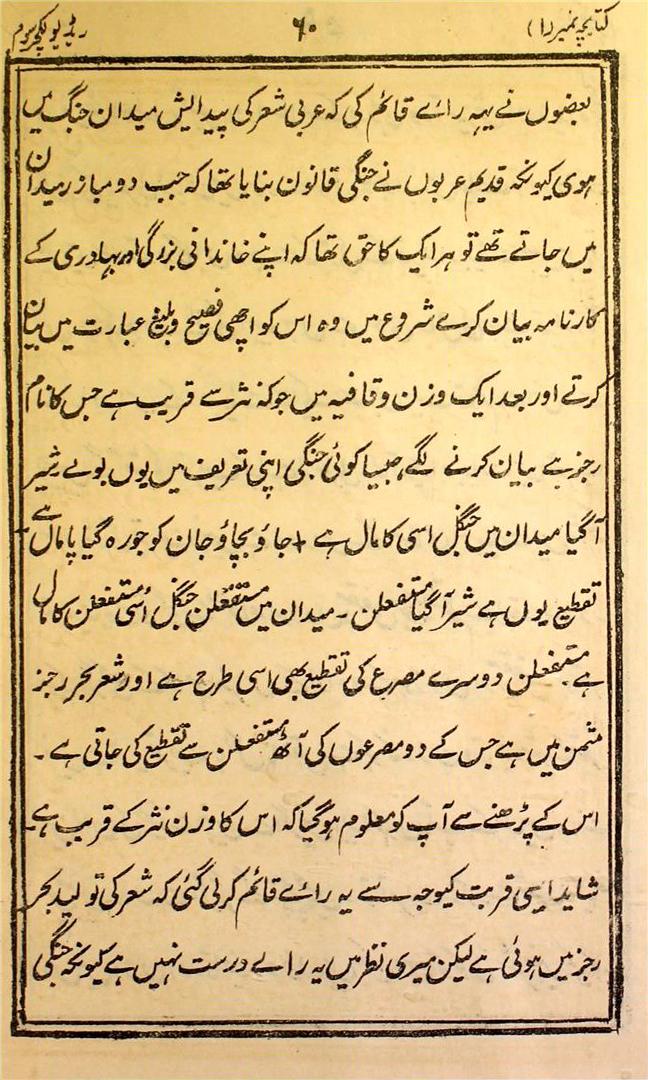 کتابچہ نمبر (۱) ۶۰ ریڈیو لکچر سوم
بعضوں نے یہہ رائے قائم کی کہ عربی شعر کی پیدایش میدان جنگ میں
ہوی کیونکہ قدیم عربوں نے جنگی قانون بنایا تھا کہ جب دو مبارز میدان
میں جاتے تھے تو ہر ایک کا حق تھا کہ اپنے خاندانی بزرگی اور بہادری کے
کارنامہ بیان کرے شروع میں وہ اس کو اچھی فصیح و بلیغ عبارت میں بیان
کرتے اور بعد ایک وزن و قافیہ میں جو کہ نثر سے قریب ہے جس کا نام
رجز ہے بیان کرنے لگے جیسا کوئی جنگی اپنی تعریف میں یوں بولے شیر
آگیا میدان میں جنگل اسی کا مال ہے + جاؤ بچاؤ جان کو جو رہ گیا پامال ہے
تقطیع یوں ہے شیر آگیا مستفعلن ۔ میدان میں مستفعلن جنگل اُسی مستفعلن کا مال
ہے مستفعلن دوسرے مصرع کی تقطیع بھی اسی طرح ہے اور شعر بحر رجز
مثمن میں ہے جس کے دو مصرعوں کی آٹھ مستفعلن سے تقطیع کی جاتی ہے ۔
اس کے پڑھنے سے آپ کو معلوم ہوگیا کہ اس کا وزن نثر کے قریب ہے
شاید ایسی قربت کیوجہ سے یہ رائے قائم کرلی گئی کہ شعر کی تولید بحر
رجز میں ہوئی ہے لیکن میری نظر میں یہ رائے درست نہیں ہے کیونکہ جنگی